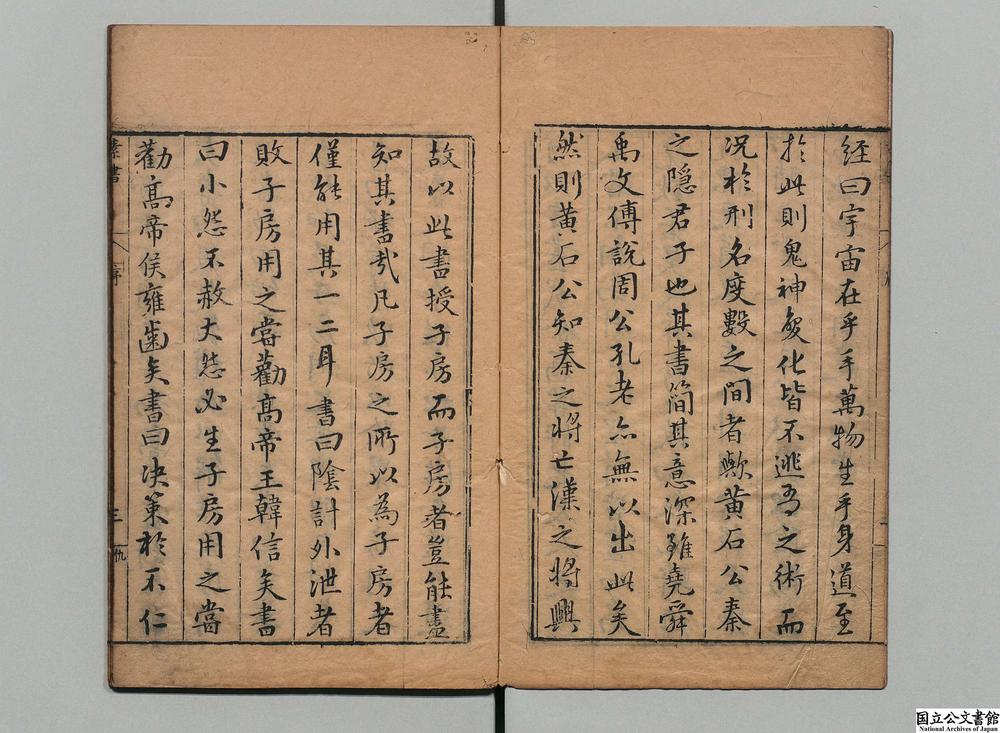 經曰宇宙在乎手萬物生乎身道至
扵此則鬼神變化皆不逃吾之術而
况扵刑名度數之間者歟黄石公秦
之隠君子也其書簡其意深雖堯舜
禹文傅説周公孔老亦無以出此矣
然則黄石公知秦之將亡漢之將興
故以此書授子房而子房者豈能盡
知其書㢤凡子房之所以為子房者
僅能用其一二耳書曰隂計外泄者
敗子房用之嘗勸髙帝王韓信矣書
曰小怨不赦大怨必生子房用之嘗
勸髙帝侯雍齒矣書曰决策扵不仁
素書
序
三
仇
国立公文書館
National Archives of Japan